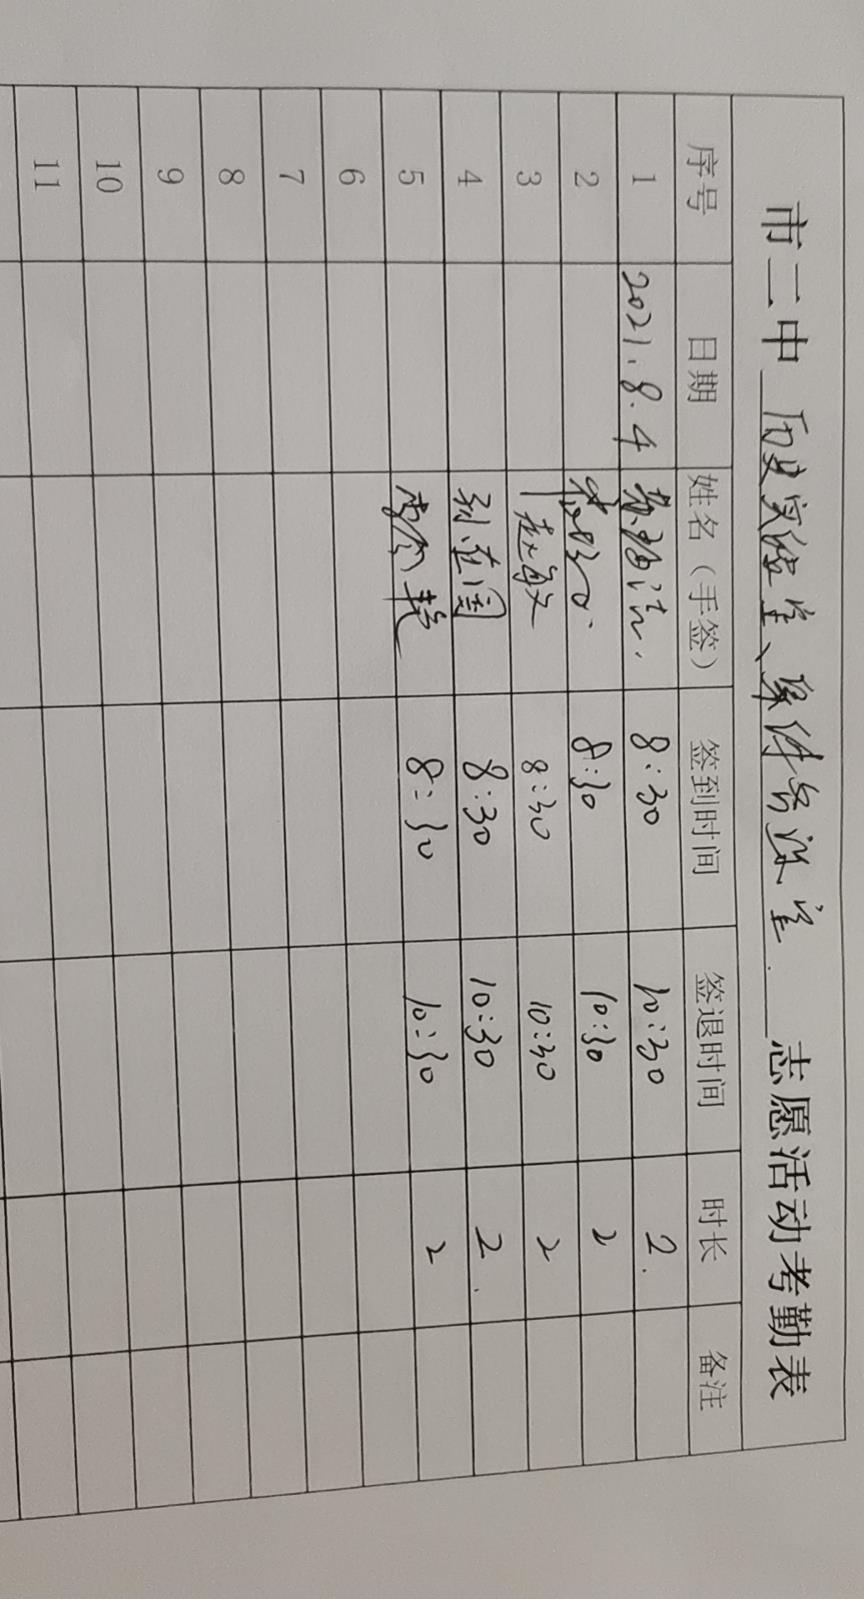 市二中 历史实验室、集体备课室 志愿活动考勤表
序号 日期 姓名(手签) 签到时间 签退时间 时长 备注
1 2021.8.4 8:30 10:30 2.
2 8:30 10:30 2
3 赵敏 8:30 10:30 2
4 8:30 10:30 2.
5 8:30 10:30 2
6
7
8
9
10
11